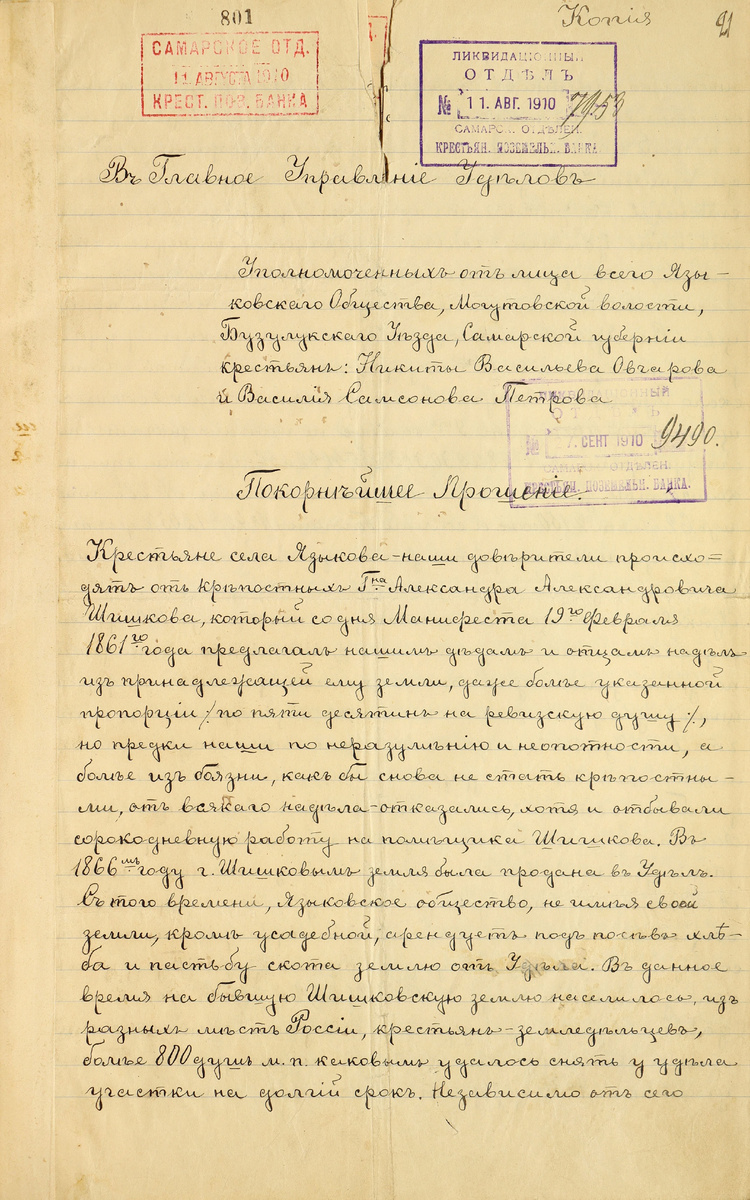 801
Копія
САМАРСКОЕ ОТД.
11 АВГУСТА 1910
КРЕСТ. ПОЗ. БАНКА
ЛИКВИДАЦІОННЫЙ
ОТДѢЛЪ
№ 11 АВГ. 1910 7953
САМАРСК. ОТДѢЛЕН.
КРЕСТЬЯН. ПОЗЕМЕЛЬН. БАНКА
Въ Главное Управленіе Удѣловъ
Уполномоченныхъ отъ лица всего Язы-
ковскаго Общества, Могутовской волости,
Бузулукскаго Уѣзда, Самарской губерніи
крестьянъ: Никиты Васильева Овчарова
и Василія Самсонова Петрова
ЛИКВИДАЦІОННЫЙ
№ СЕНТ 1910 9490.
САМАР. ОТДѢЛЕН.
КРЕСТЬЯН. ПОЗЕМЕЛЬН. БАНКА.
Покорнѣйшее Прошеніе.
Крестьяне села Языкова-наши довѣрители происхо=
дятъ отъ крѣпостныхъ Гна Александра Александровича
Шишкова, который со дня Манифеста 19го Февраля
1861го года предлагалъ нашимъ дѣдамъ и отцамъ надѣлъ
изъ принадлежащей ему земли, даже болѣе указанной
пропорціи /. по пяти десятинъ на ревизскую душу /.,
но предки наши по неразумѣнію и неопотности, а
болѣе изъ боязни, какъ бы снова не стать крѣпостны-
ми, отъ всякаго надѣла-отказались, хотя и отбывали
сорокодневную работу на помѣщика Шишкова. Въ
1866мъ году г. Шишковымъ земля была продана въ Удѣлъ.
Съ того времени, Языковское общество, не имѣя своей
земли, кромѣ усадебной, арендуетъ подъ посѣвъ хлѣ-
ба и пастьбу скота землю отъ Удѣла. Въ данное
время на бывшую Шишковскую землю населилось, изъ
разныхъ мѣстъ Россіи, крестьянъ-земледѣльцевъ,
болѣе 800 душъ м. п. каковымъ удалось снять у удѣла
участки на долгій срокъ. Независимо отъ сего